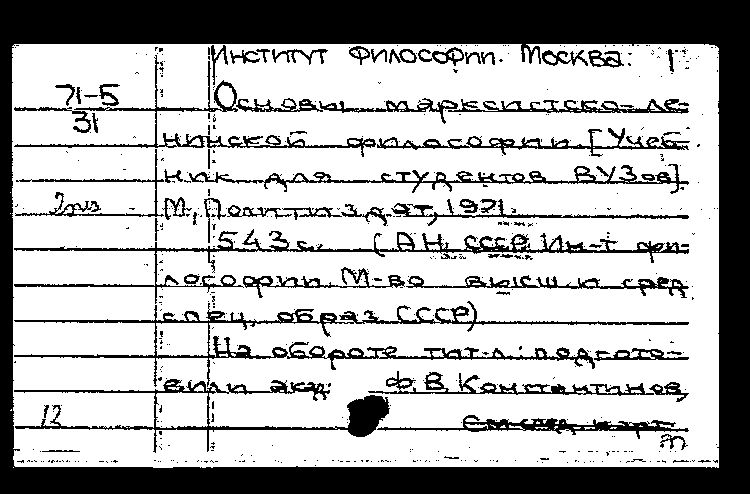 Институт философии. Москва. 1
71-5
31
Основы марксистско-ле-
нинской философии. [Учеб-
ник для студентов ВУЗов].
М, Политиздат, 1971.
543 с. (АН СССР. Ин-т фи-
лософии. М-во высш и сред
спец. образ. СССР)
На обороте тит.л.: подгото-
вили акад: Ф.В. Константинов,
12
См след карт